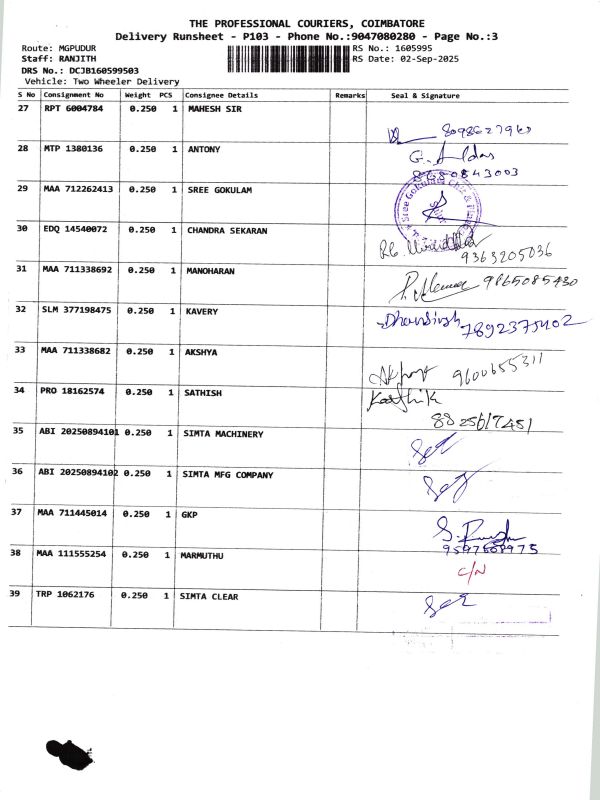 THE PROFESSIONAL COURIERS, COIMBATORE
Delivery Runsheet - P103 - Phone No.:9047080280 - Page No.:3
Route: MGPUDUR RS No.: 1605995
Staff: RANJITH RS Date: 02-Sep-2025
DRS No.: DCJB160599503
Vehicle: Two Wheeler Delivery
S No Consignment No Weight PCS Consignee Details Remarks Seal & Signature
27 RPT 6004784 0.250 1 MAHESH SIR
8098627960
28 MTP 1380136 0.250 1 ANTONY
8680843003
29 MAA 712262413 0.250 1 SREE GOKULAM
Sree Gokulam Chit &
30 EDQ 14540072 0.250 1 CHANDRA SEKARAN
9363205036
31 MAA 711338692 0.250 1 MANOHARAN
9865085430
32 SLM 377198475 0.250 1 KAVERY
7892375402
33 MAA 711338682 0.250 1 AKSHYA
9600655311
34 PRO 18162574 0.250 1 SATHISH
Karthik
8825617451
35 ABI 20250894101 0.250 1 SIMTA MACHINERY
36 ABI 20250894102 0.250 1 SIMTA MFG COMPANY
37 MAA 711445014 0.250 1 GKP
9597608975
38 MAA 111555254 0.250 1 MARMUTHU
C/N
39 TRP 1062176 0.250 1 SIMTA CLEAR